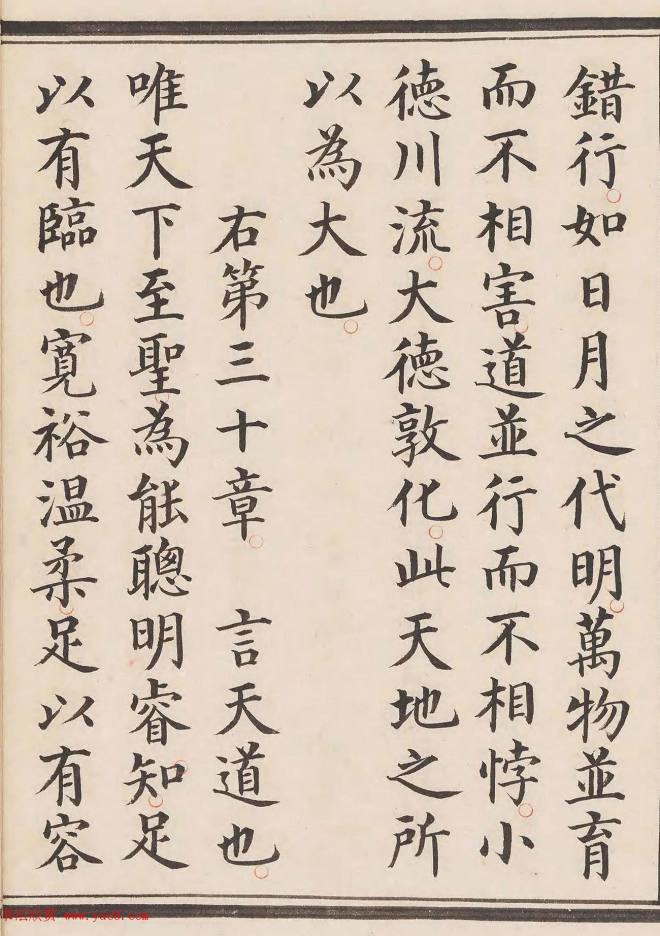 錯行如日月之代明萬物並育
而不相害道並行而不相悖小
德川流大德敦化此天地之所
以為大也
右第三十章 言天道也
唯天下至聖為能聰明睿知足
以有臨也寬裕温柔足以有容
www.yac8.com